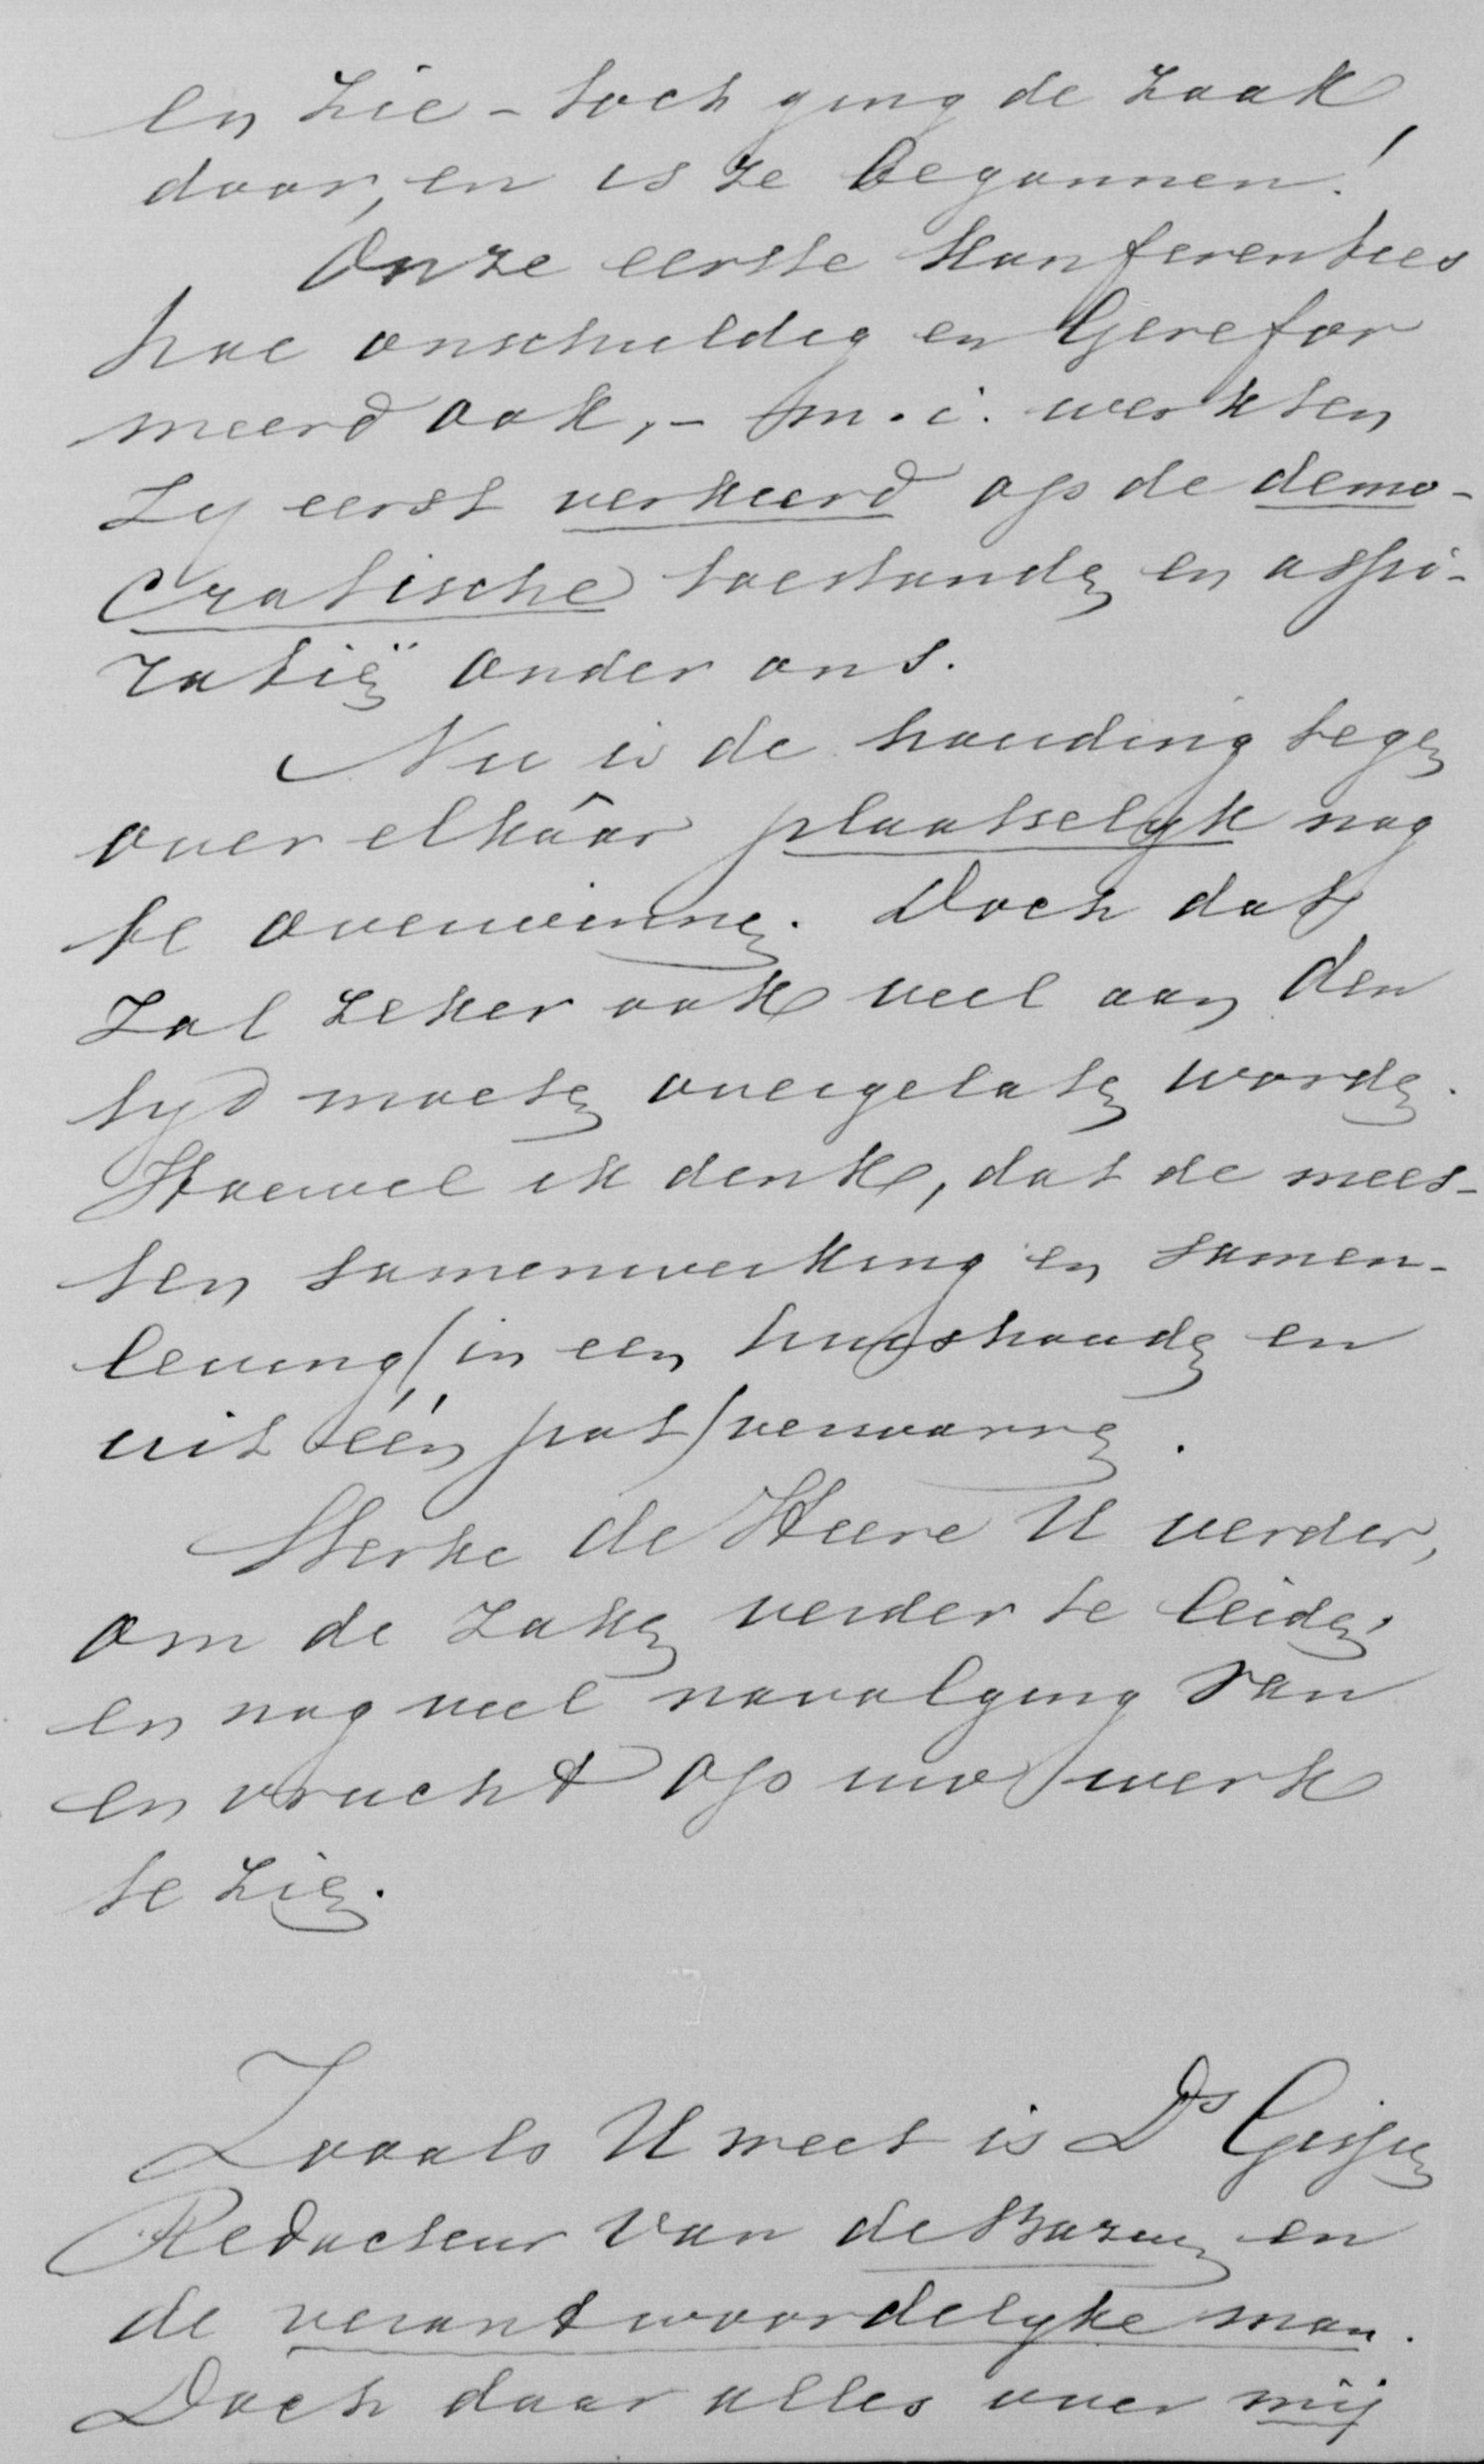 en zie - toch ging de zaak
door, en is ze begonnen!
Onze eerste konferenties
hoe onschuldig en Gerefor
meerd ook, - m.i. werkten
zy eerst verkeerd op de demo-
cratische toestanden en aspi-
ratiën onder ons.
Nu is de houding tegen
over elkâar plaatselyk nog
te overwinnen. Doch dat
zal zeker ook veel aan den
tyd moeten overgelaten worden.
Hoewel ik denk, dat de mees-
ten samenwerking en samen-
leving (in een huishouden en
uit één pot) verwarren.
Sterke de Heere U verder,
om de zaken verder te leiden,
en nog veel navolging van
en vrucht op uw werk
te zien.
Zooals U weet is Ds Gispen
Redacteur van de Bazuin en
de verantwoordelyke man.
Doch daar alles over mij